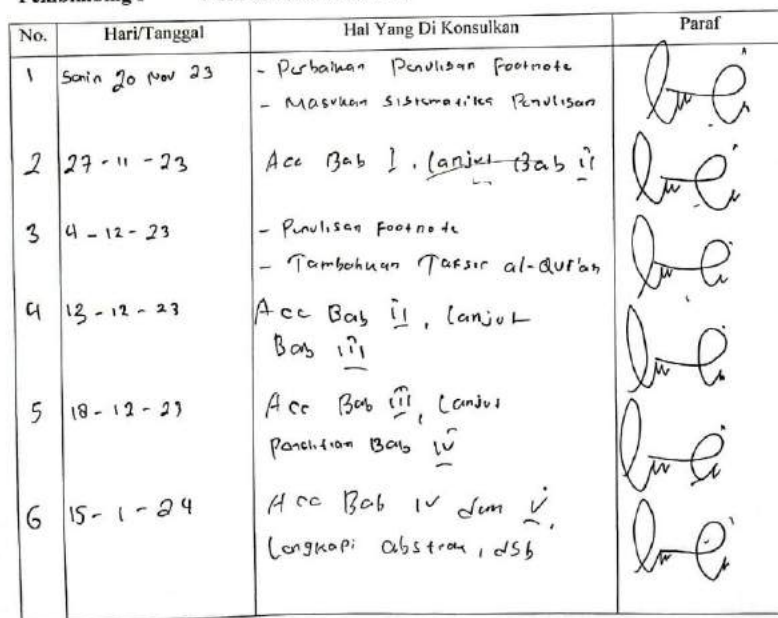 No. Hari/Tanggal Hal Yang Di Konsulkan Paraf
1 Senin 20 Nov 23 - Perbaikan Penulisan Footnote
- Masukan Sistematika Penulisan
2 27-11-23 Acc Bab I, lanjut Bab II
3 4-12-23 - Penulisan Footnote
- Tambahkan Tafsir al-Qur'an
4 13-12-23 Acc Bab II, lanjut
Bab III
5 18-12-23 Acc Bab III, Lanjut
Penelitian Bab IV
6 15-1-24 Acc Bab IV dan V,
Lengkapi abstrak, dsb